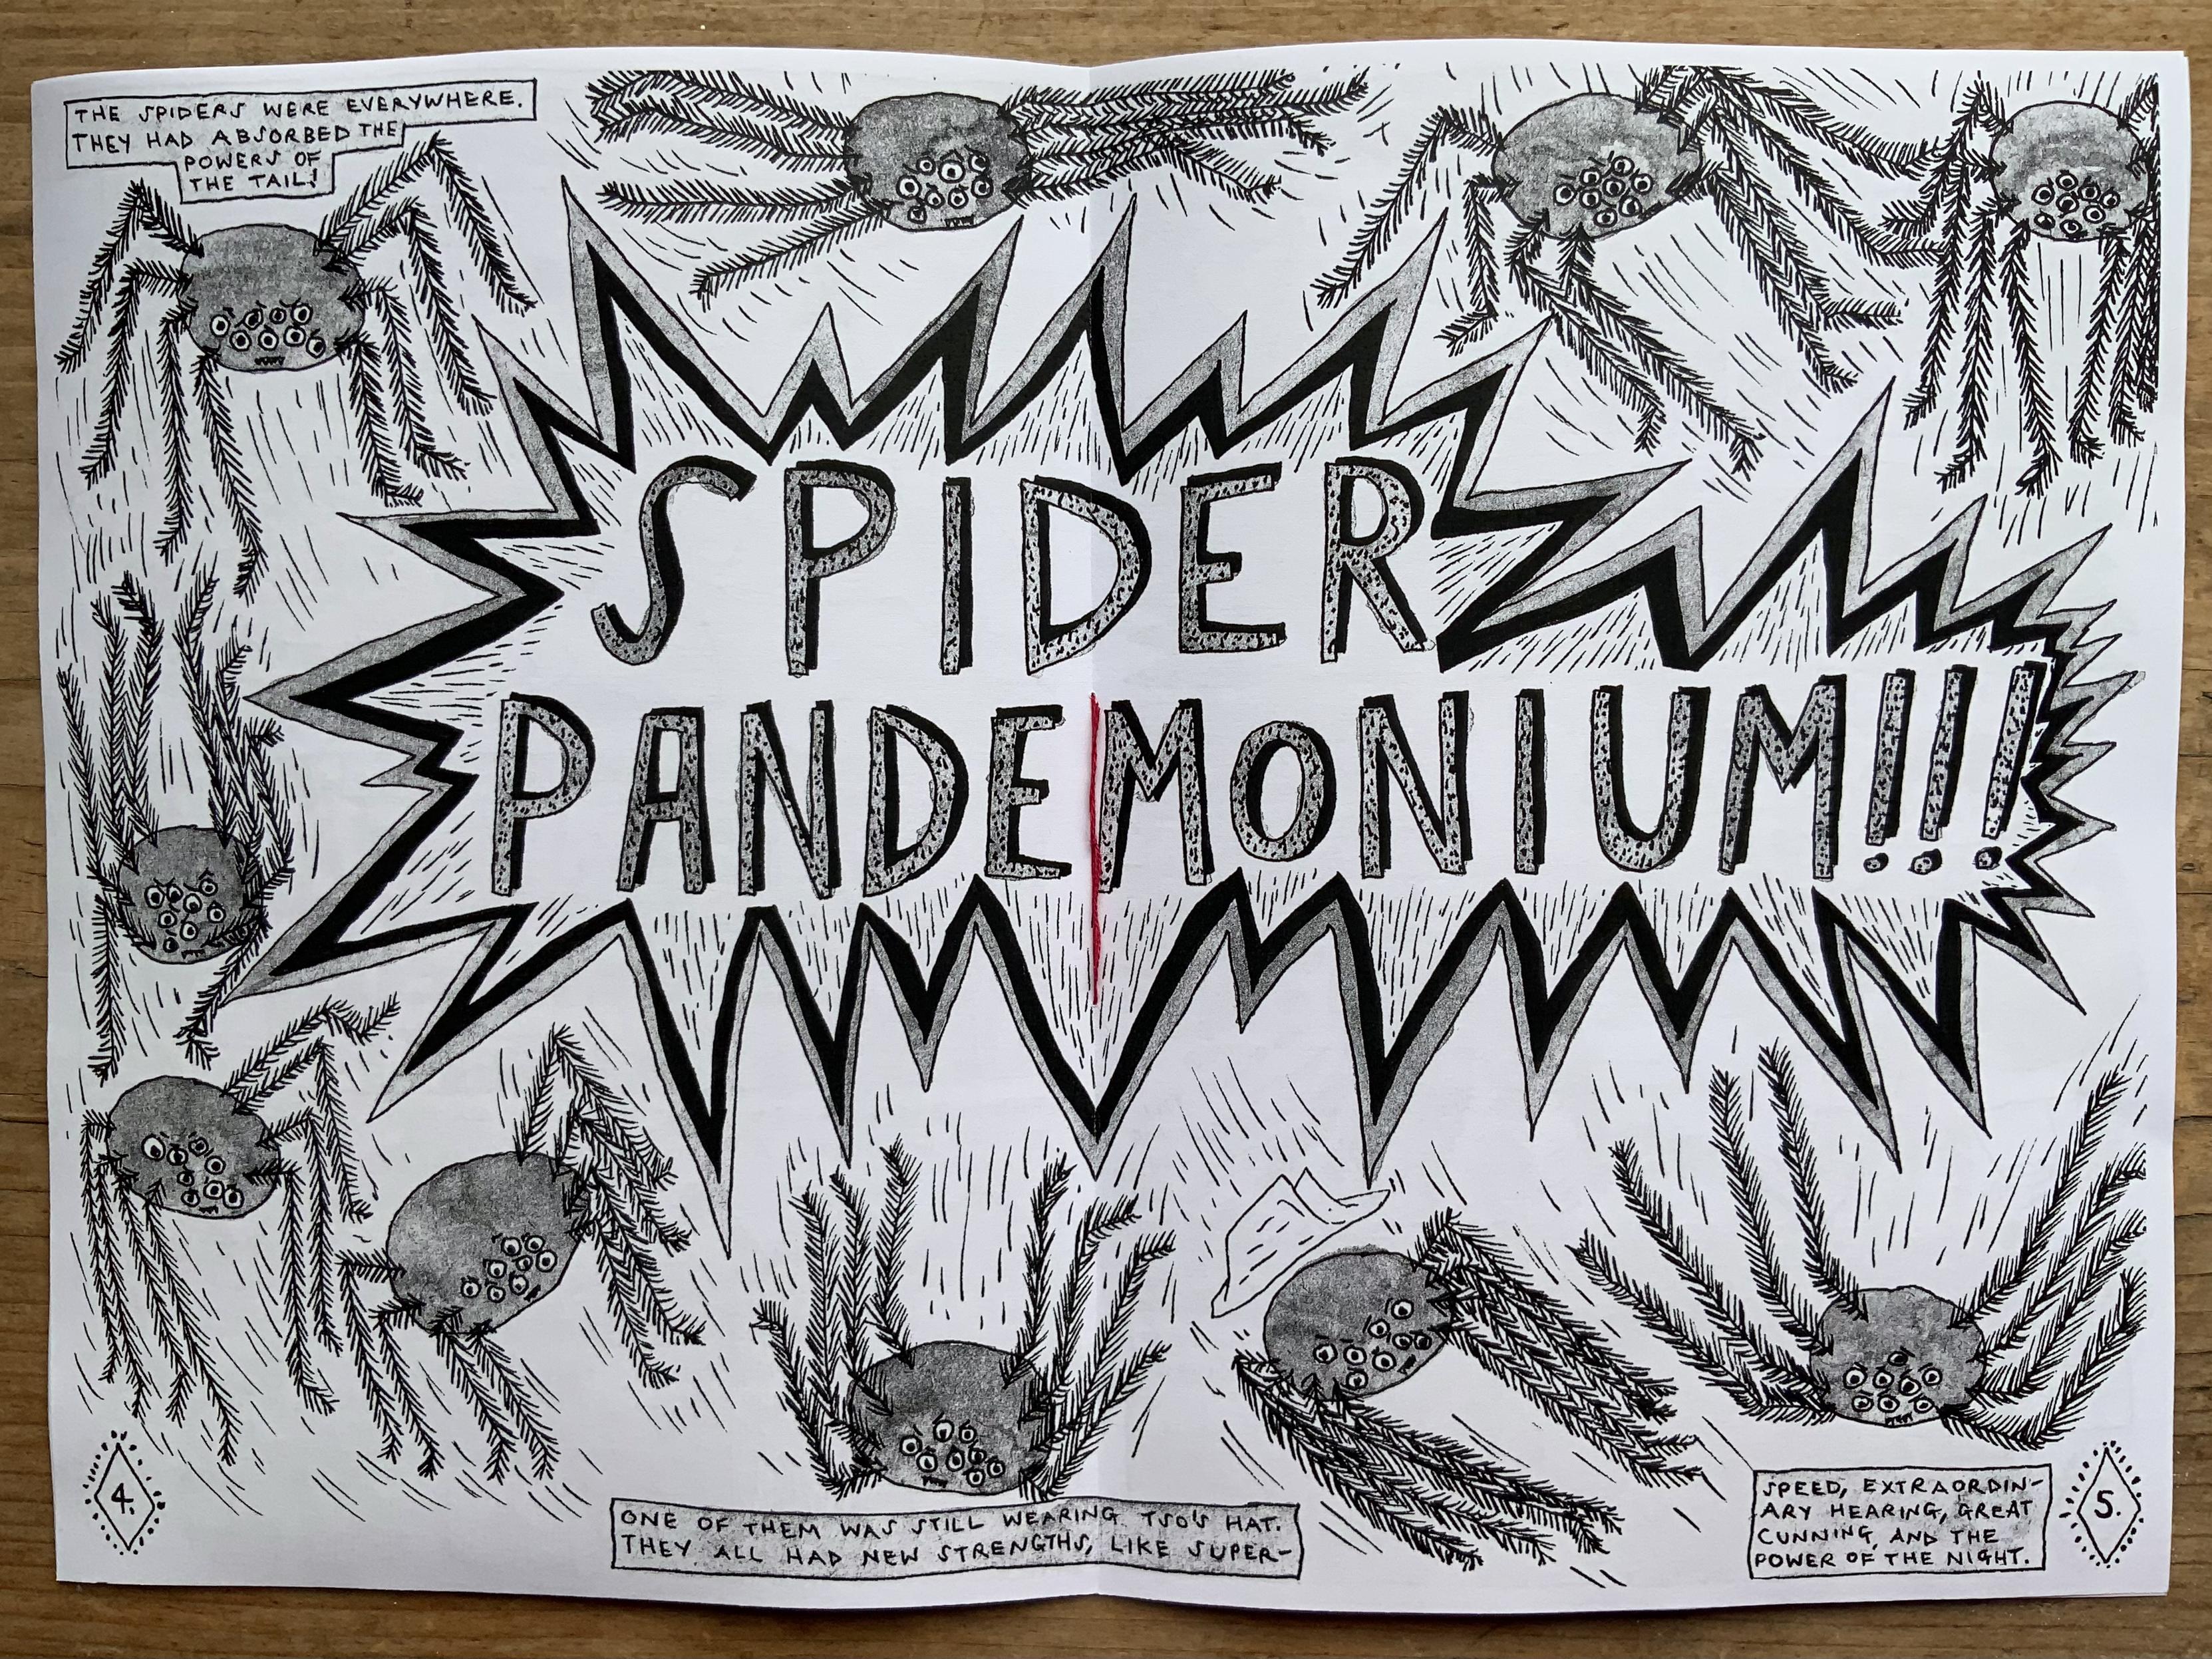 THE SPIDERS WERE EVERYWHERE.
THEY HAD ABSORBED THE
POWERS OF
THE TAIL!
SPIDER
PANDEMONIUM!!!
ONE OF THEM WAS STILL WEARING TSO'S HAT.
THEY ALL HAD NEW STRENGTHS, LIKE SUPER-
SPEED, EXTRAORDIN-
ARY HEARING, GREAT
CUNNING, AND THE
POWER OF THE NIGHT.
4.
5.